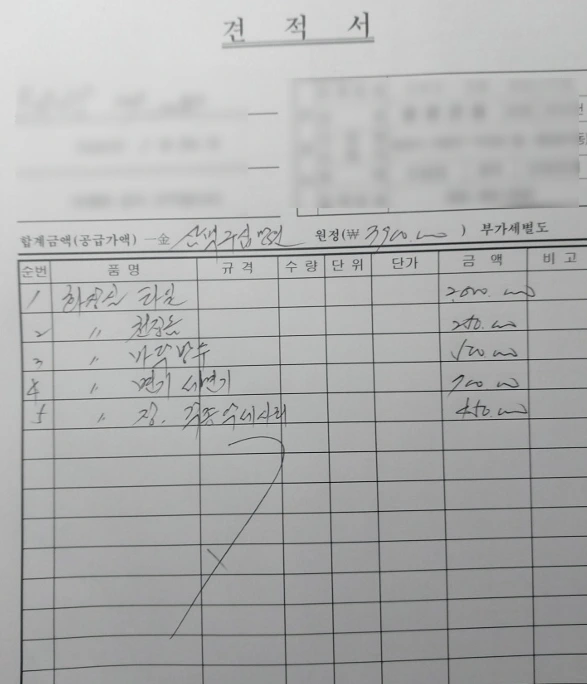 견 적 서
합계금액(공급가액) 一金 삼백구십만원 원정(₩ 3900.000) 부가세별도
순번 품 명 규 격 수 량 단 위 단가 금 액 비 고
1 화장실 타일 2,000.000
2 〃 천정돔 250.000
3 〃 바닥방수 500.000
4 〃 변기 세면기 700.000
5 〃 장. 각종 악세사리 450.000